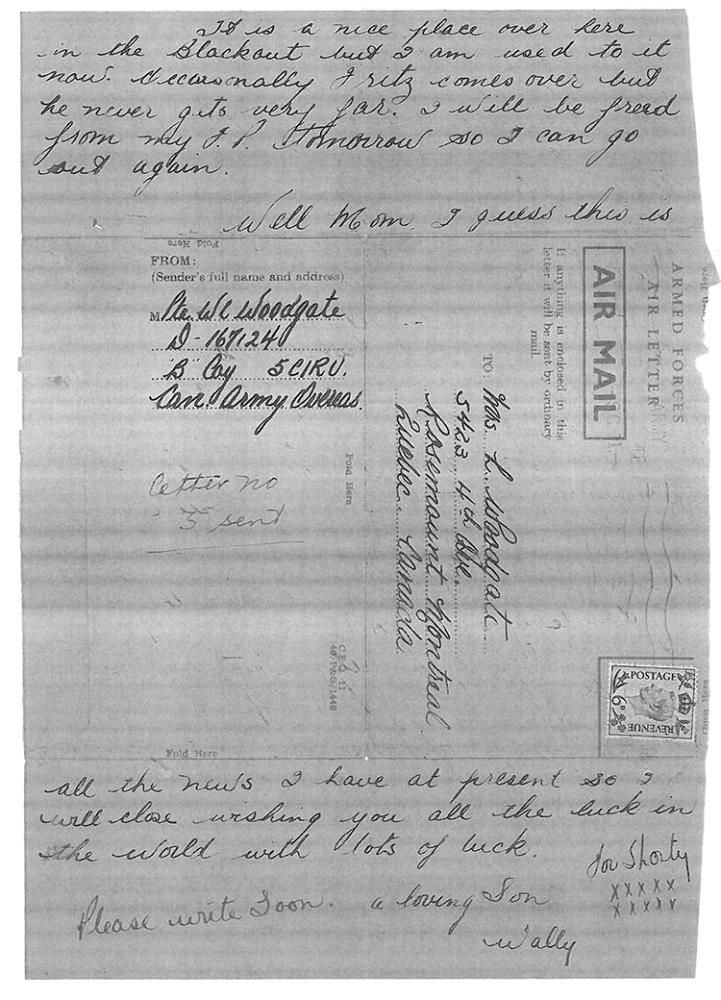 It is a nice place over here
in the Blackout but I am used to it
now. Occasonally Fritz comes over but
he never gets very far. I will be freed
from my F.P. tomorrow so I can go
out again.
Well Mom, I guess this is
Fold Here
FROM:
(Sender's full name and address)
Pte. W C Woodgate
D-167124
"B" Coy 5CIRU.
Can. Army Overseas.
Letter no
5 sent
Fold Here
ARMED FORCES
AIR LETTER
AIR MAIL
If anything is enclosed in this
letter it will be sent by ordinary
mail.
TO:
Mrs. L. Woodgate
5423 4th Ave.
Rosemount Montreal
Quebec Canada
POSTAGE
6D
REVENUE
Fold Here
all the news I have at present so I
will close wishing you all the luck in
the world with lots of luck.
for Shorty
xxxxx
xxxxx
Please write Soon. a loving Son
Wally